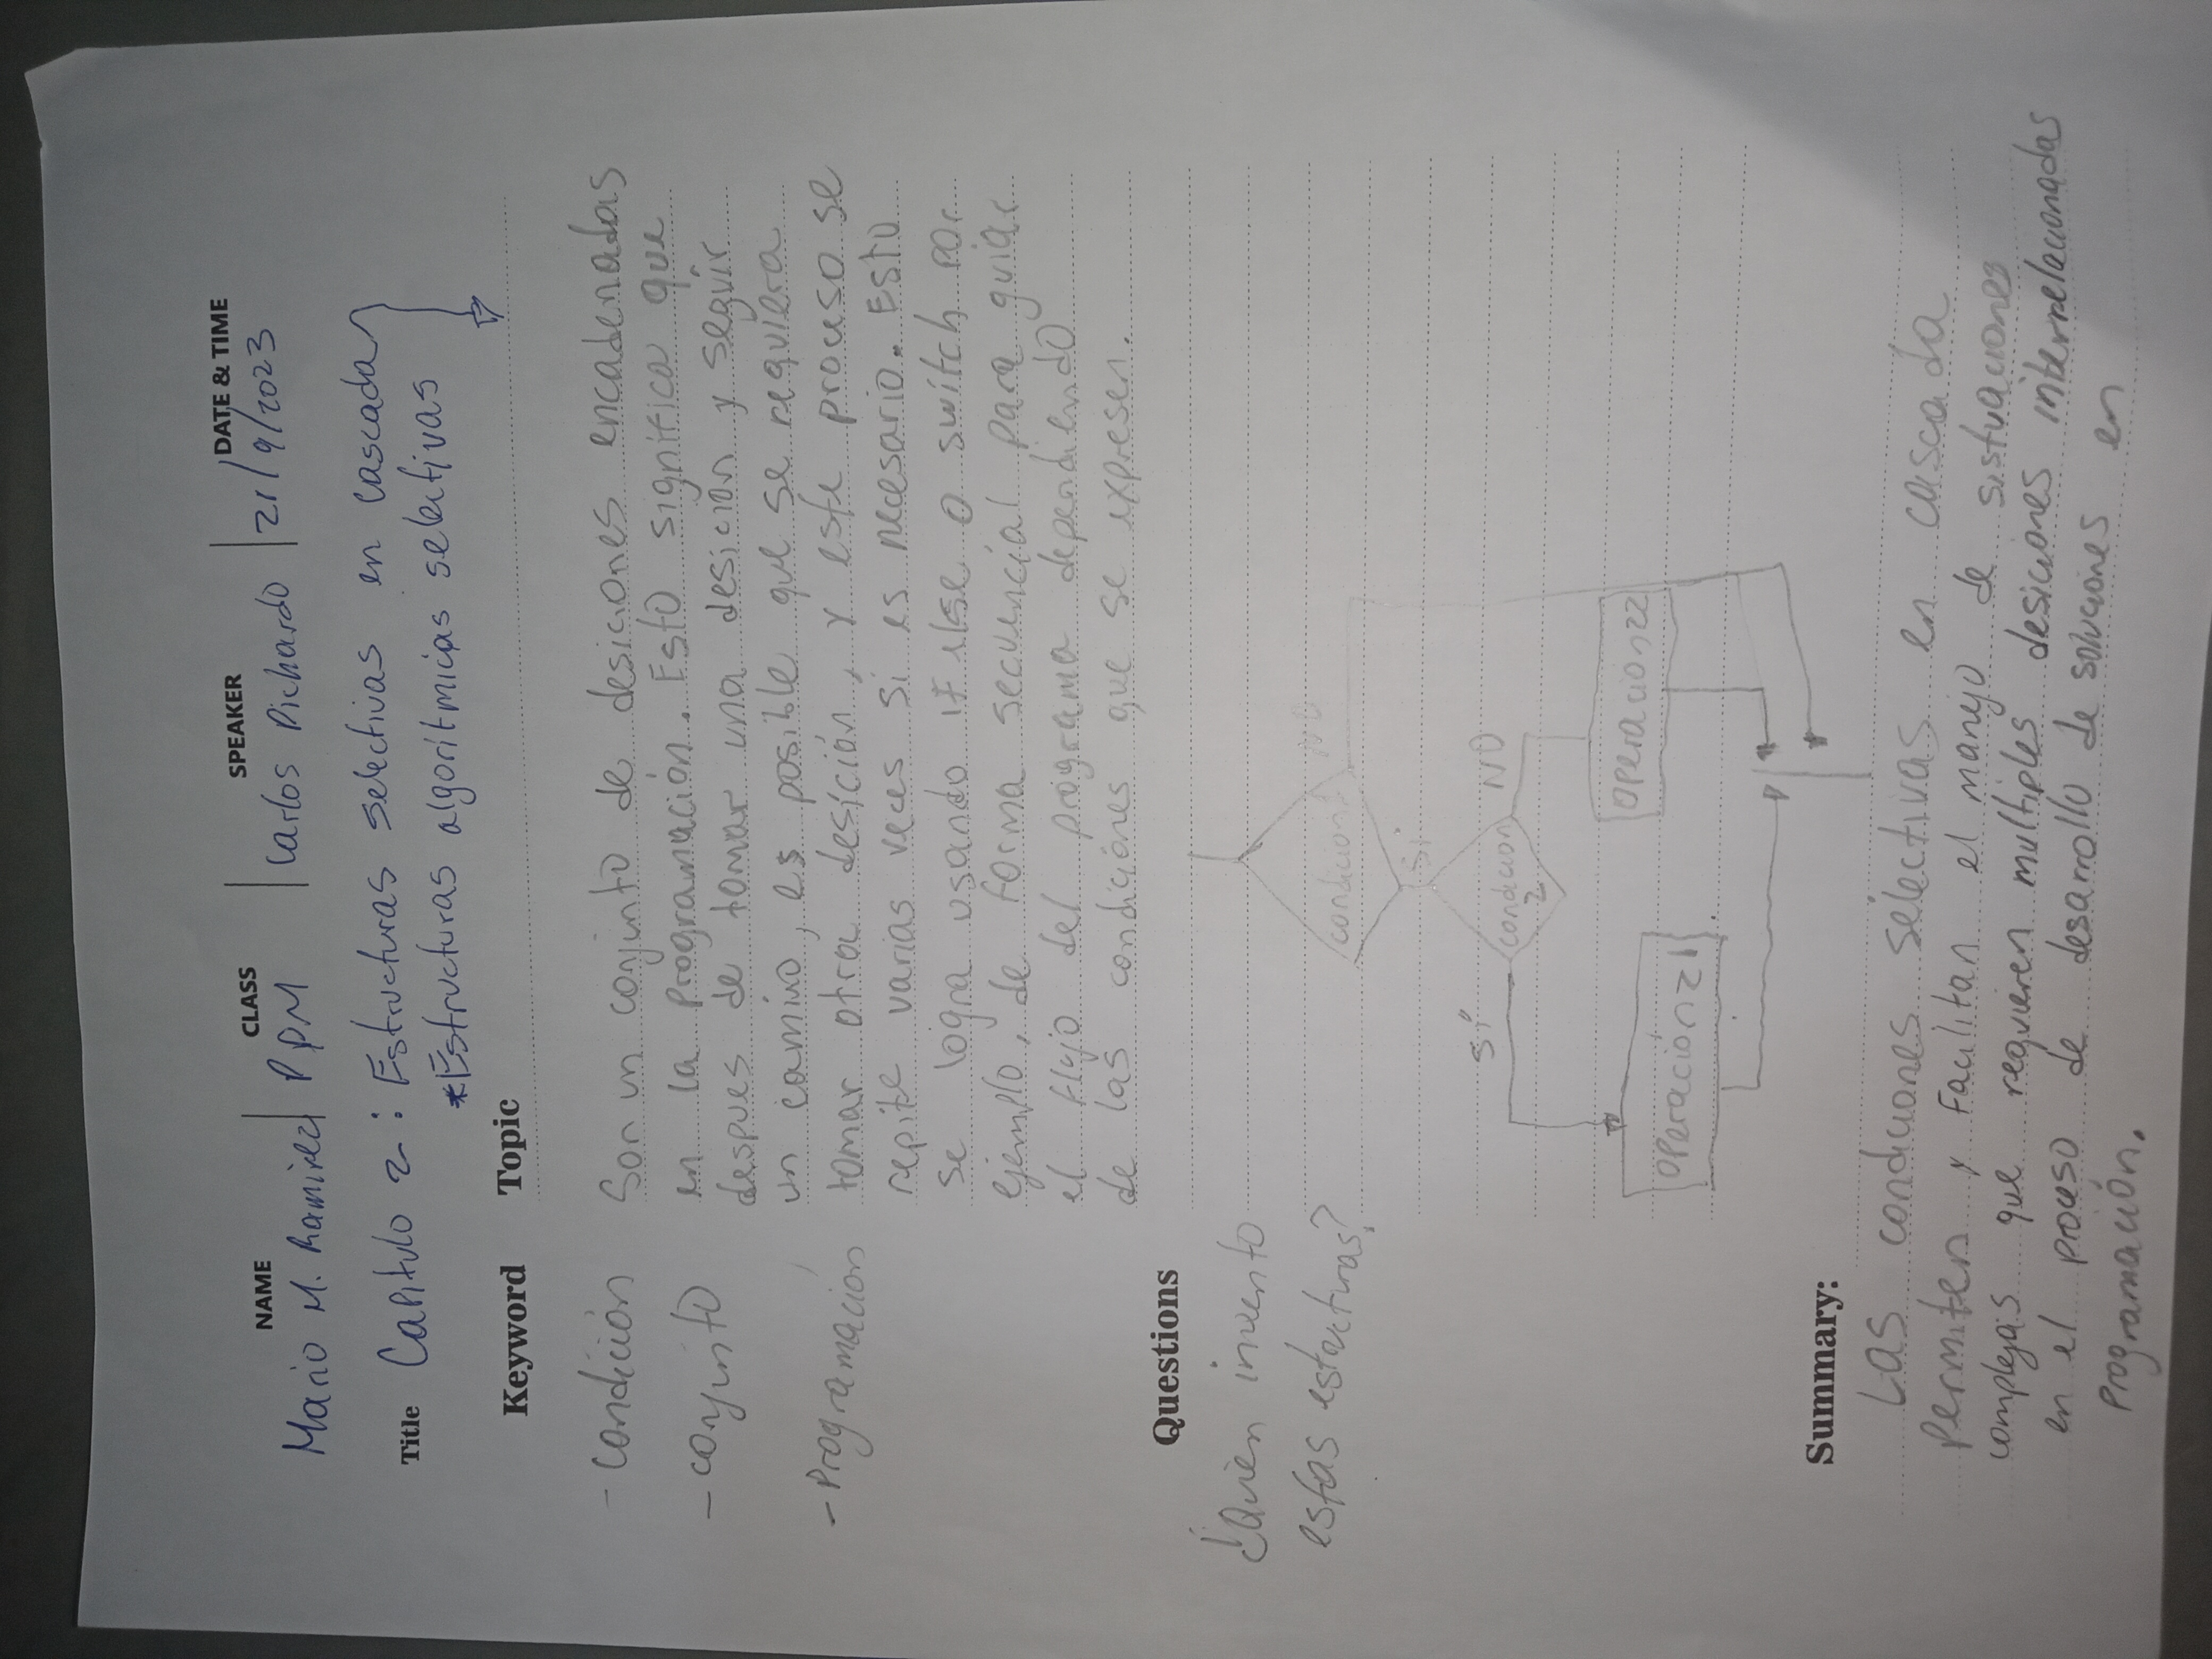 NAME
CLASS
SPEAKER
DATE & TIME
Mario M. Ramirez
PPM
Carlos Pichardo
21/9/2023
Title Capitulo 2: Estructuras selectivas en cascada
*Estructuras algoritmicas selectivas
Keyword
Topic
- Condición
- conjunto
- Programación
Son un conjunto de desiciones encadenadas
en la programación. Esto significa que
despues de tomar una desición y seguir
un camino, es posible que se requiera
tomar otra desición, y este proceso se
repite varias veces si es necesario. Esto
se logra usando if else o switch por
ejemplo, de forma secuencial para guiar
el flujo del programa dependiendo
de las condiciones que se expresen.
Questions
¿Quien invento
estas estructuras?
condicion1
NO
Si
Sí
condicion
2
NO
Operación21
Operacion22
Summary:
Las condiciones selectivas en cascada
permiten y facilitan el manejo de sistuaciones
complejas que requieren multiples desiciones interrelacionadas
en el proceso de desarrollo de soluciones en
programación.